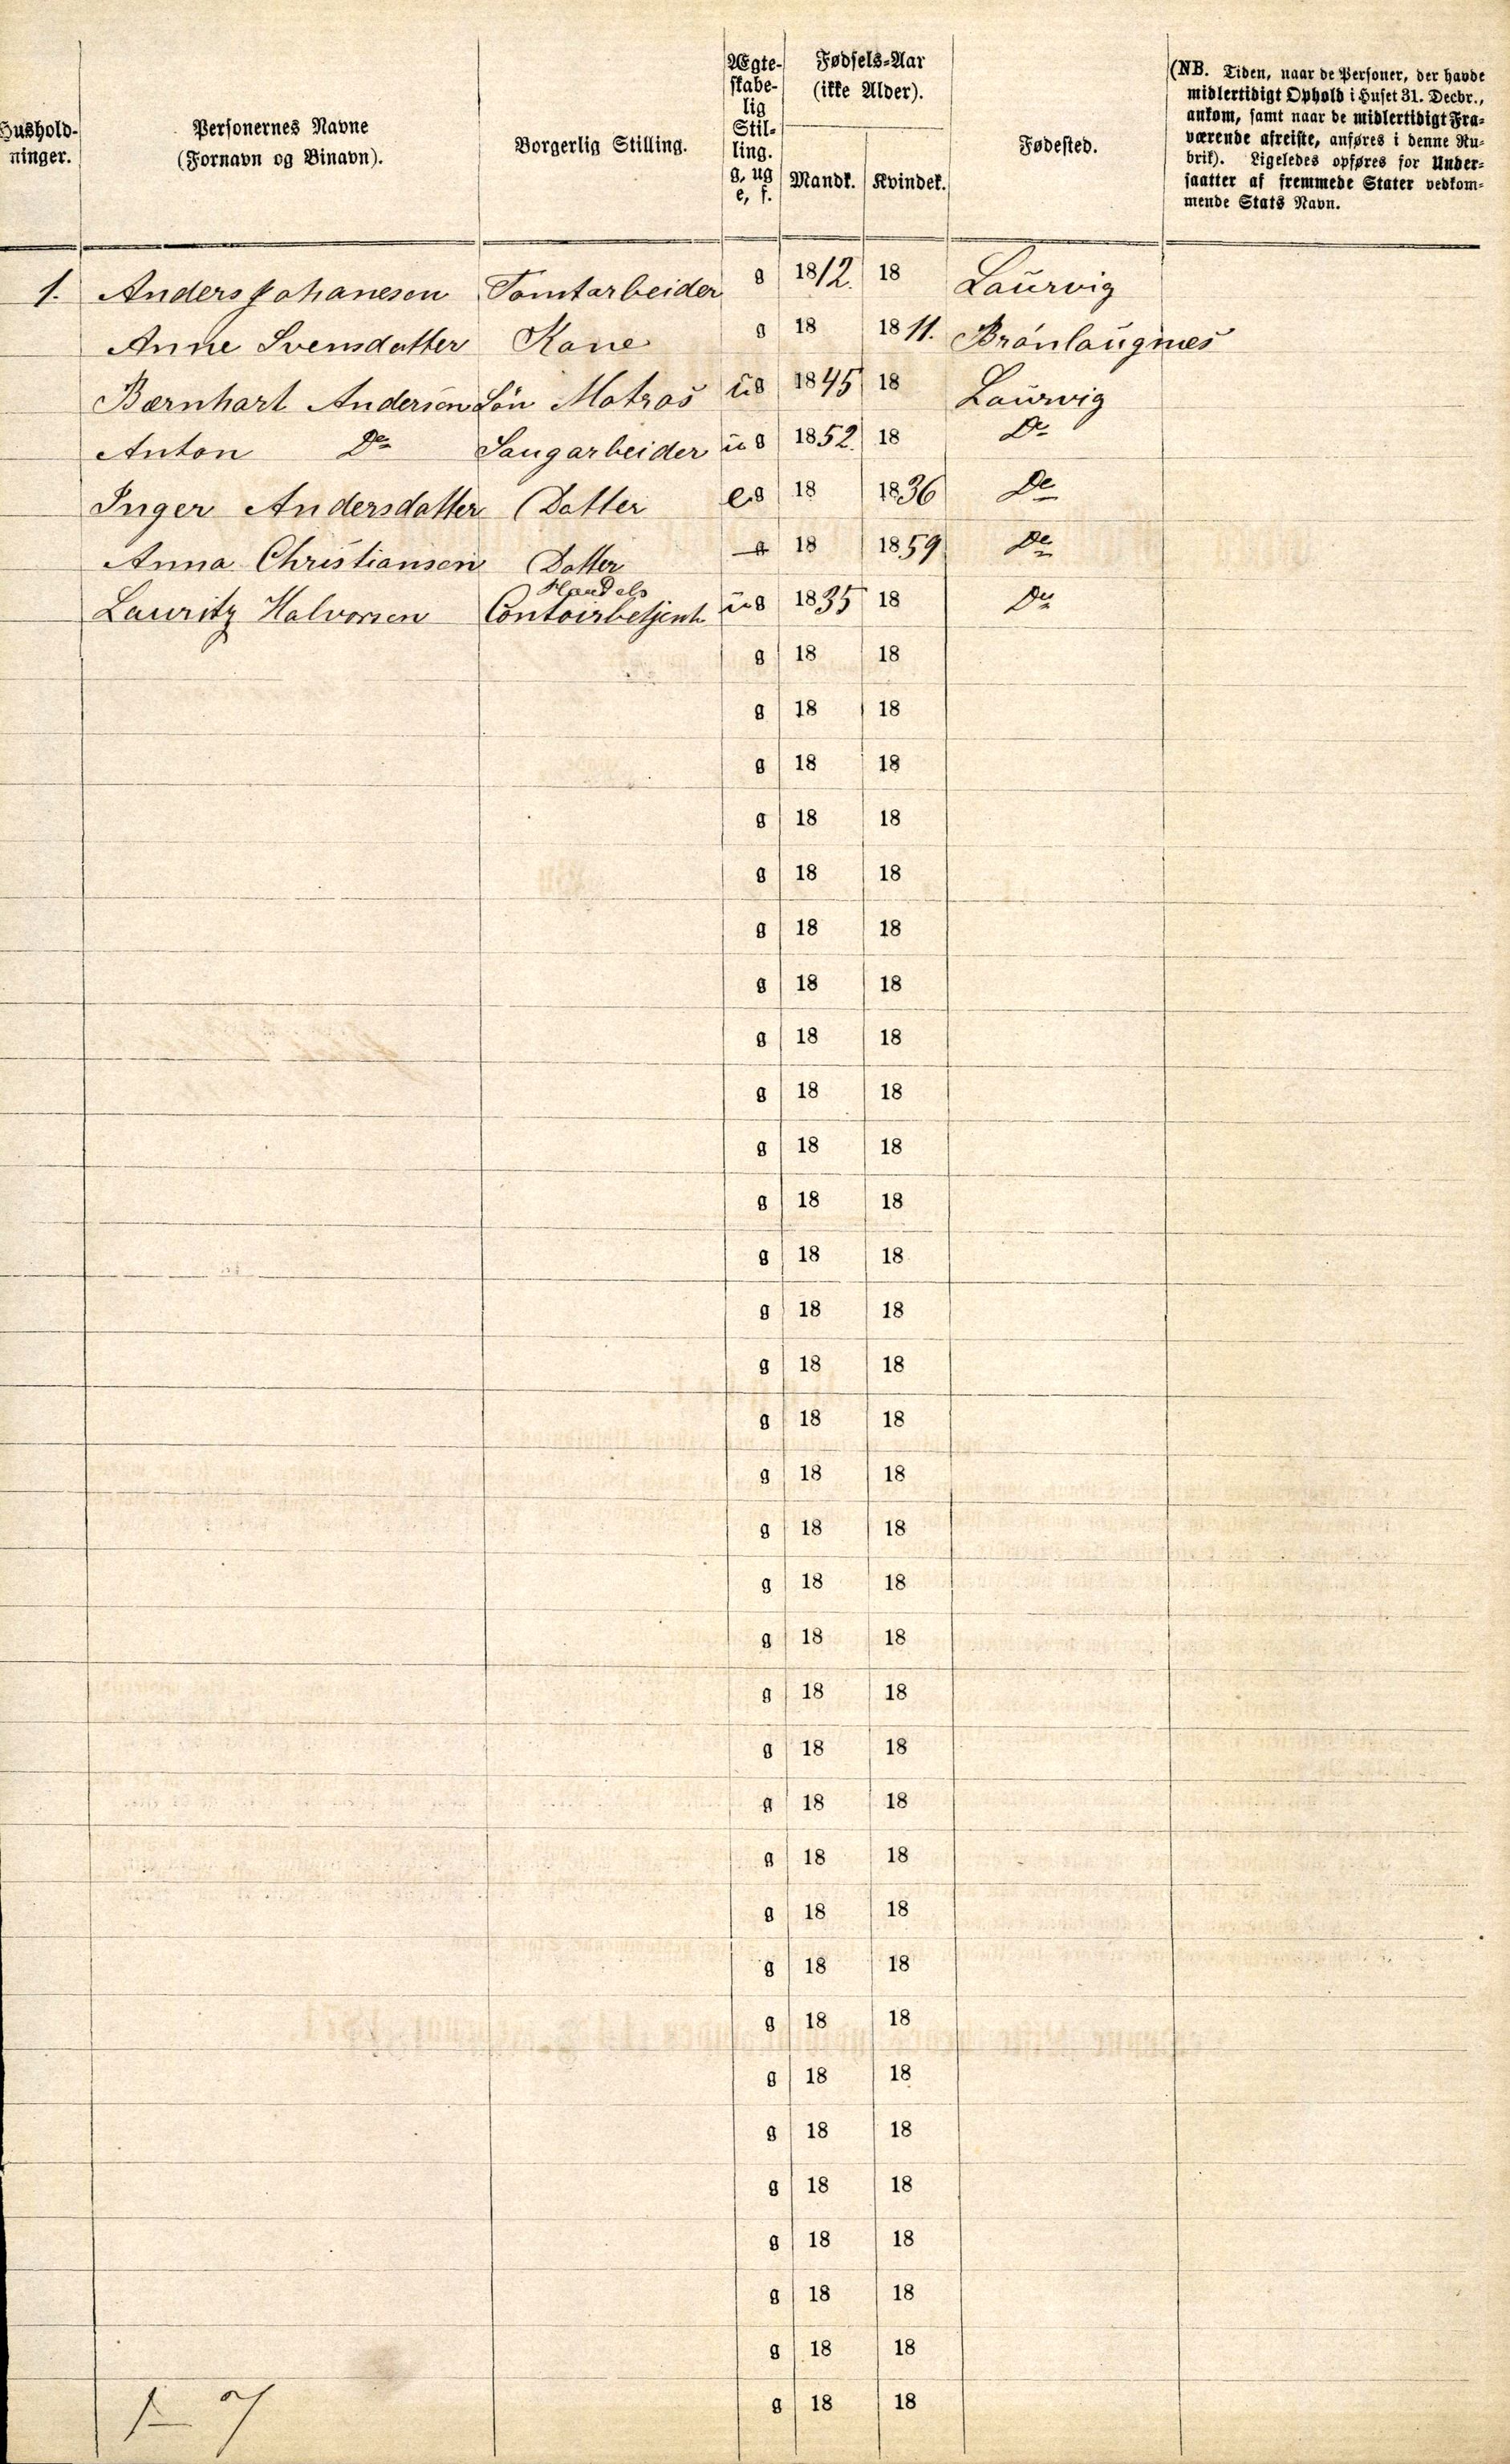 Hushold-
ninger.
Personernes Navne
(Fornavn og Binavn).
Borgerlig Stilling.
Ægte-
skabe-
lig
Stil-
ling.
g, ug
e, f.
Fødsels-Aar
(ikke Alder).
Mandk. Kvindek.
Fødested.
(NB. Tiden, naar de Personer, der havde
midlertidigt Ophold i Huset 31. Decbr.,
ankom, samt naar de midlertidigt Fra-
værende afreiste, anføres i denne Ru-
brik). Ligeledes opføres for Under-
saatter af fremmede Stater vedkom-
mende Stats Navn.
1. Anders Johanesen Tomtarbeider g 1812. 18 Laurvig
Anne Svensdatter Kone g 18 1811. Brónlaugnes
Bærnhart Andersen Sön Matros ug 1845 18 Laurvig
Anton Do Saugarbeider ug 1852. 18 Do
Inger Andersdatter Datter eg 18 1836 Do
Anna Christiansen Datter g 18 1859 Do
Handels
Lauritz Halvorsen Contoirbetjent ug 1835 18 Do
g 18 18
g 18 18
g 18 18
g 18 18
g 18 18
g 18 18
g 18 18
g 18 18
g 18 18
g 18 18
g 18 18
g 18 18
g 18 18
g 18 18
g 18 18
g 18 18
g 18 18
g 18 18
g 18 18
g 18 18
g 18 18
g 18 18
g 18 18
g 18 18
g 18 18
g 18 18
g 18 18
g 18 18
g 18 18
g 18 18
g 18 18
g 18 18
g 18 18
1 – 7